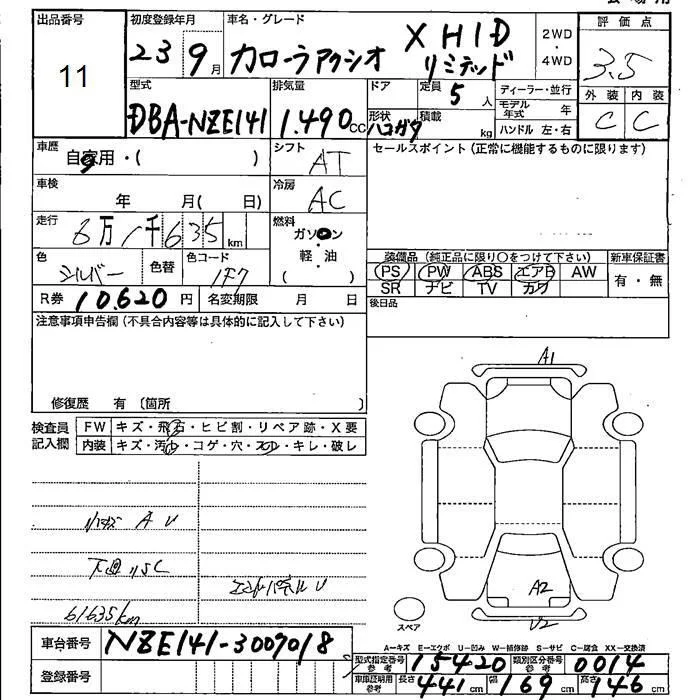 出品番号
11
初度登録年月
23 9月
車名・グレード
カローラアクシオ X HID リミテッド
2WD
・
4WD
評価点
3.5
外装 内装
C C
型式
DBA-NZE141
排気量
1.490cc
ドア
形状
ハコガタ
定員
5人
積載
kg
ディーラー・並行
モデル年式 年
ハンドル 左・右
車歴
自家用・( )
シフト
AT
セールスポイント(正常に機能するものに限ります)
車検
年 月( 日)
冷房
AC
走行
6万1千635km
燃料
ガソリン
・
軽・油
( )
色
シルバー
色替
色コード
1F7
装備品(純正品に限り○をつけて下さい)
PS PW ABS エアB AW
SR ナビ TV カワ
新車保証書
有・無
R券 10.620円
名変期限 月 日
後日品
注意事項申告欄(不具合内容等は具体的に記入して下さい)
修復歴 有〔箇所 〕
検査員記入欄
FW キズ・飛石・ヒビ割・リペア跡・X要
内装 キズ・汚れ・コゲ・穴・スレ・キレ・破レ
A U
下廻りSC
エンドパネルU
61635km
A1
A2
U2
スペア
A-キズ E-エクボ U-凹み W-補修跡 S-サビ C-腐食 XX-交換済
車台番号
NZE141-3007018
登録番号
型式指定番号 参考
15420
類別区分番号 参考
0014
車庫証明用 参考
長さ 441cm
幅 169cm
高さ 146cm